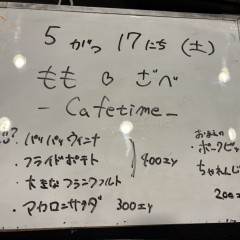 5がつ17にち(土)
もものごべ
-Cafetime-
・パリパリウィンナ
・フライドポテト
400エン
・大きなフランクフルト
・マカロニサラダ 300エン
ポークビッ
ちゃれんじ
200エ